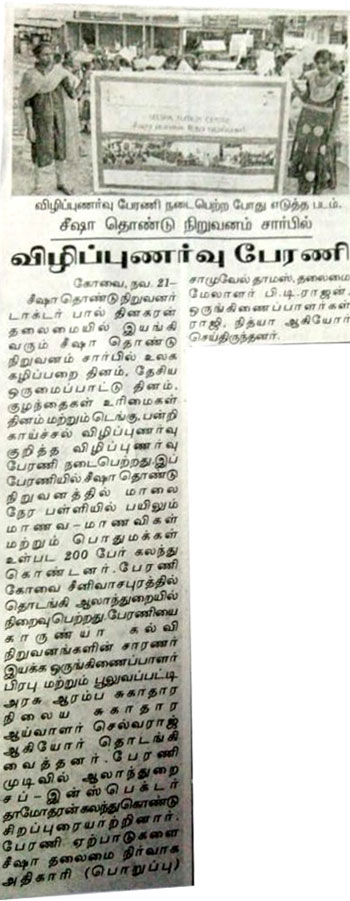 SEESHA TUITION CENTRE
விழிப்புணர்வு பேரணி நடைபெற்ற போது எடுத்த படம்.
சீஷா தொண்டு நிறுவனம் சார்பில்
விழிப்புணர்வு பேரணி
கோவை, நவ. 21–
சீஷா தொண்டு நிறுவனர்
டாக்டர் பால் தினகரன்
தலைமையில் இயங்கி
வரும் சீஷா தொண்டு
நிறுவனம் சார்பில் உலக
கழிப்பறை தினம், தேசிய
ஒருமைப்பாட்டு தினம்,
குழந்தைகள் உரிமைகள்
தினம் மற்றும் டெங்கு, பன்றி
காய்ச்சல் விழிப்புணர்வு
குறித்த விழிப்புணர்வு
பேரணி நடைபெற்றது.இப்
பேரணியில் சீஷா தொண்டு
நிறுவனத்தில் மாலை
நேர பள்ளியில் பயிலும்
மாணவ–மாணவிகள்
மற்றும் பொதுமக்கள்
உள்பட 200 பேர் கலந்து
கொண்டனர். பேரணி
கோவை சீனிவாசபுரத்தில்
தொடங்கி ஆலாந்துறையில்
நிறைவுபெற்றது.பேரணியை
காருண்யா கல்வி
நிறுவனங்களின் சாரணர்
இயக்க ஒருங்கிணைப்பாளர்
பிரபு மற்றும் பூலுவப்பட்டி
அரசு ஆரம்ப சுகாதார
நிலைய சுகாதார
ஆய்வாளர் செல்வராஜ்
ஆகியோர் தொடங்கி
வைத்தனர். பேரணி
முடிவில் ஆலாந்துறை
சப்–இன்ஸ்பெக்டர்
தாமோதரன் கலந்துகொண்டு
சிறப்புரையாற்றினார்.
பேரணி ஏற்பாடுகளை
சீஷா தலைமை நிர்வாக
அதிகாரி (பொறுப்பு)
சாமுவேல் தாமஸ், தலைமை
மேலாளர் பி.டி.ராஜன்,
ஒருங்கிணைப்பாளர்கள்
ராஜி, நித்யா ஆகியோர்
செய்திருந்தனர்.